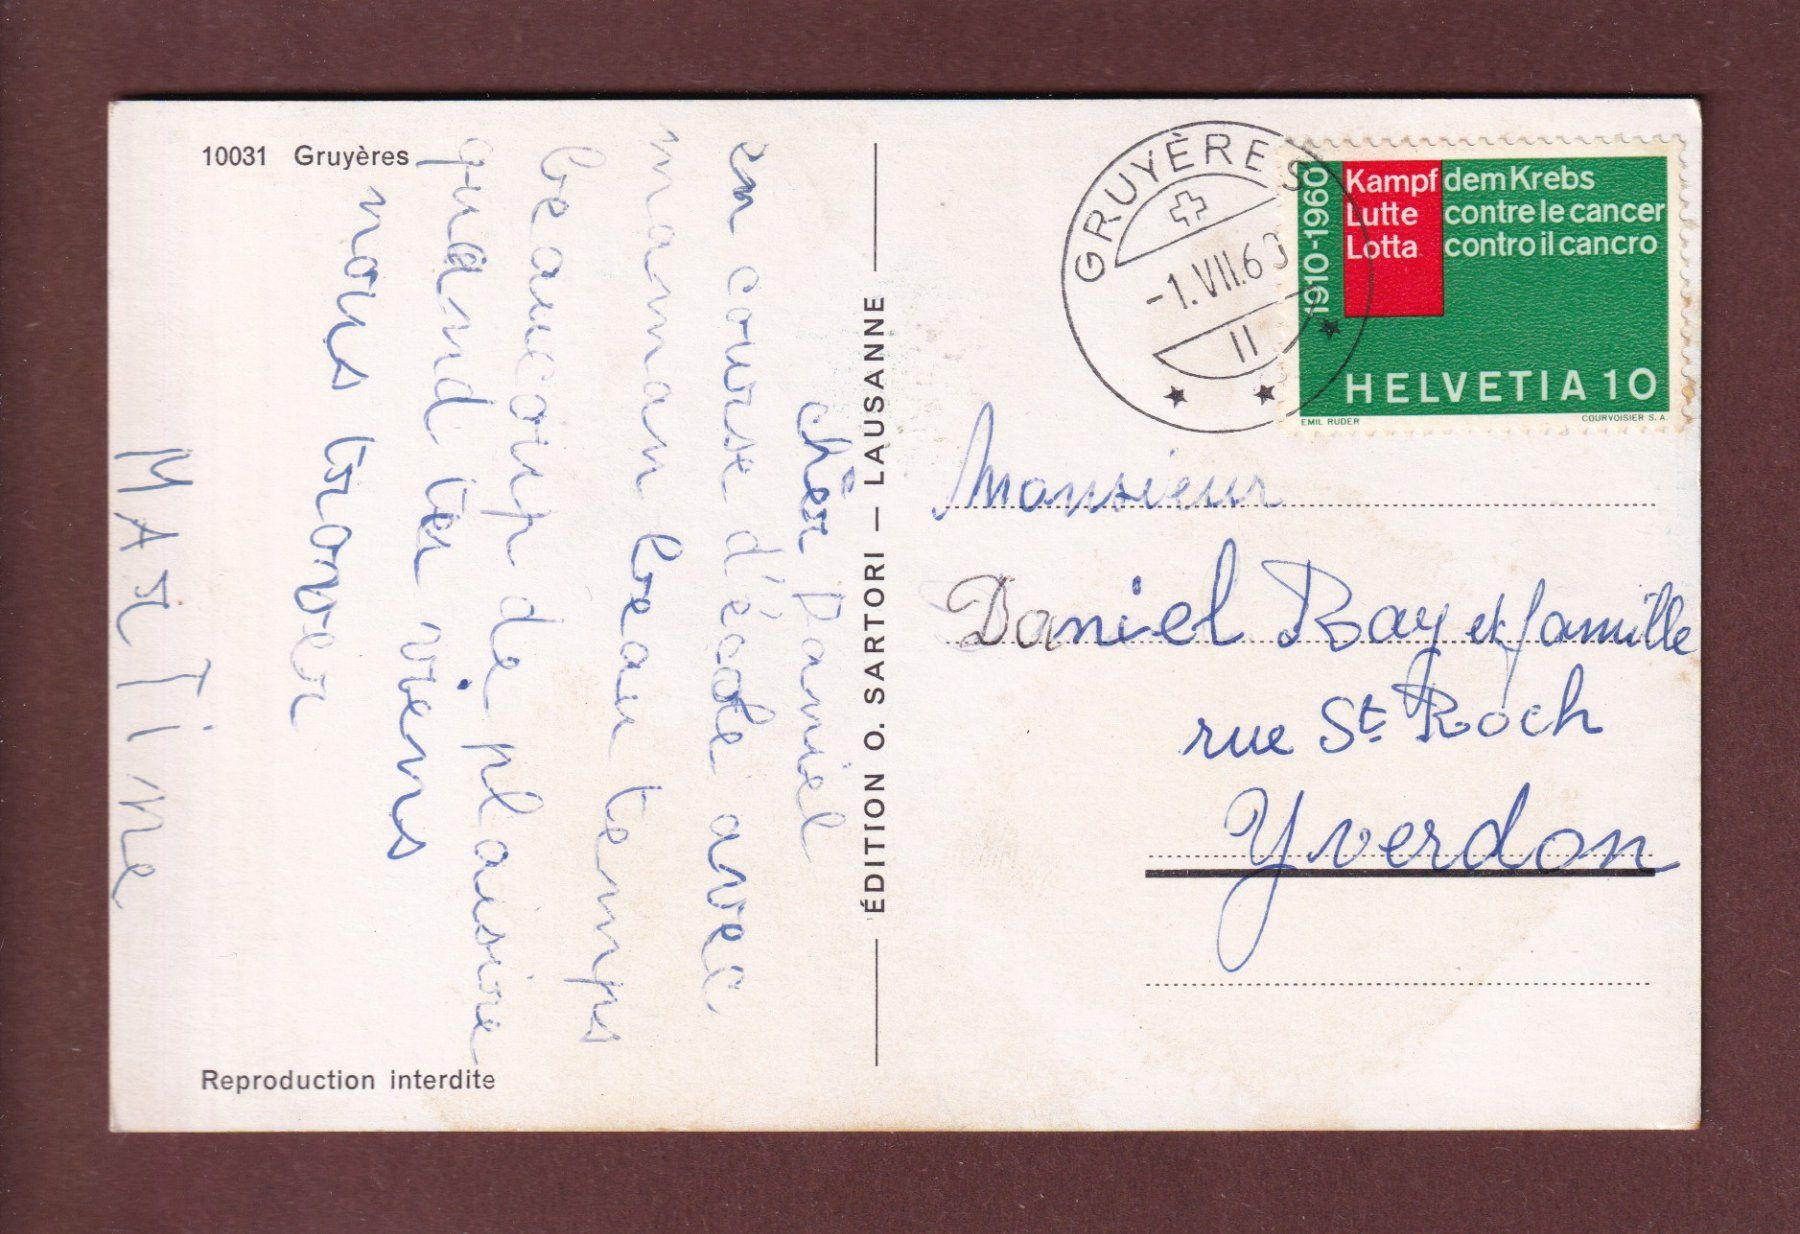 10031 Gruyères
cher Daniel
en course d'école avec
maman beau temps
beaucoup de plaisire
quand tu viens
nous trouver
MArTiNe
Reproduction interdite
ÉDITION O. SARTORI — LAUSANNE
GRUYÈRES
-1.VII.60
11
1910-1960
Kampf dem Krebs
Lutte contre le cancer
Lotta contro il cancro
HELVETIA 10
EMIL RUDER COURVOISIER S.A.
Monsieur
Daniel Ray et famille
rue St Roch
Yverdon